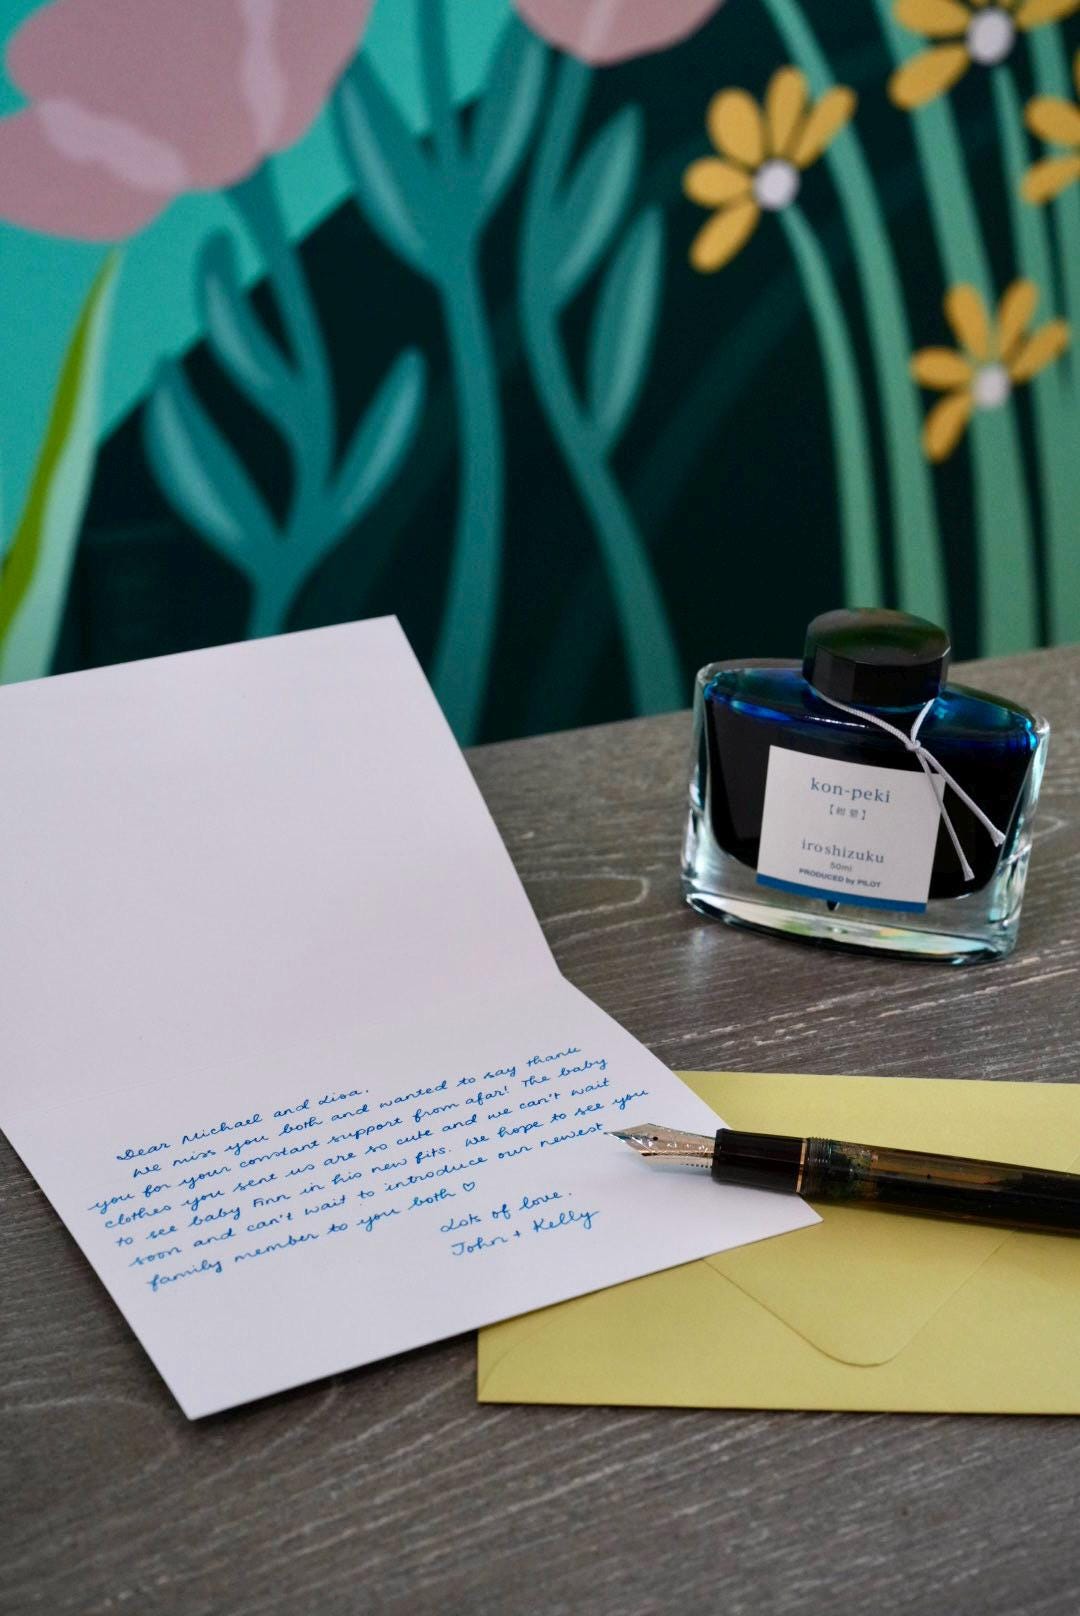 kon-peki
【紺碧】
iroshizuku
50ml
PRODUCED by PILOT
Dear Michael and Lisa,
We miss you both and wanted to say thank
you for your constant support from afar! The baby
clothes you sent us are so cute and we can't wait
to see baby Finn in his new fits. We hope to see you
soon and can't wait to introduce our newest
family member to you both ♡
Lots of love,
John + Kelly